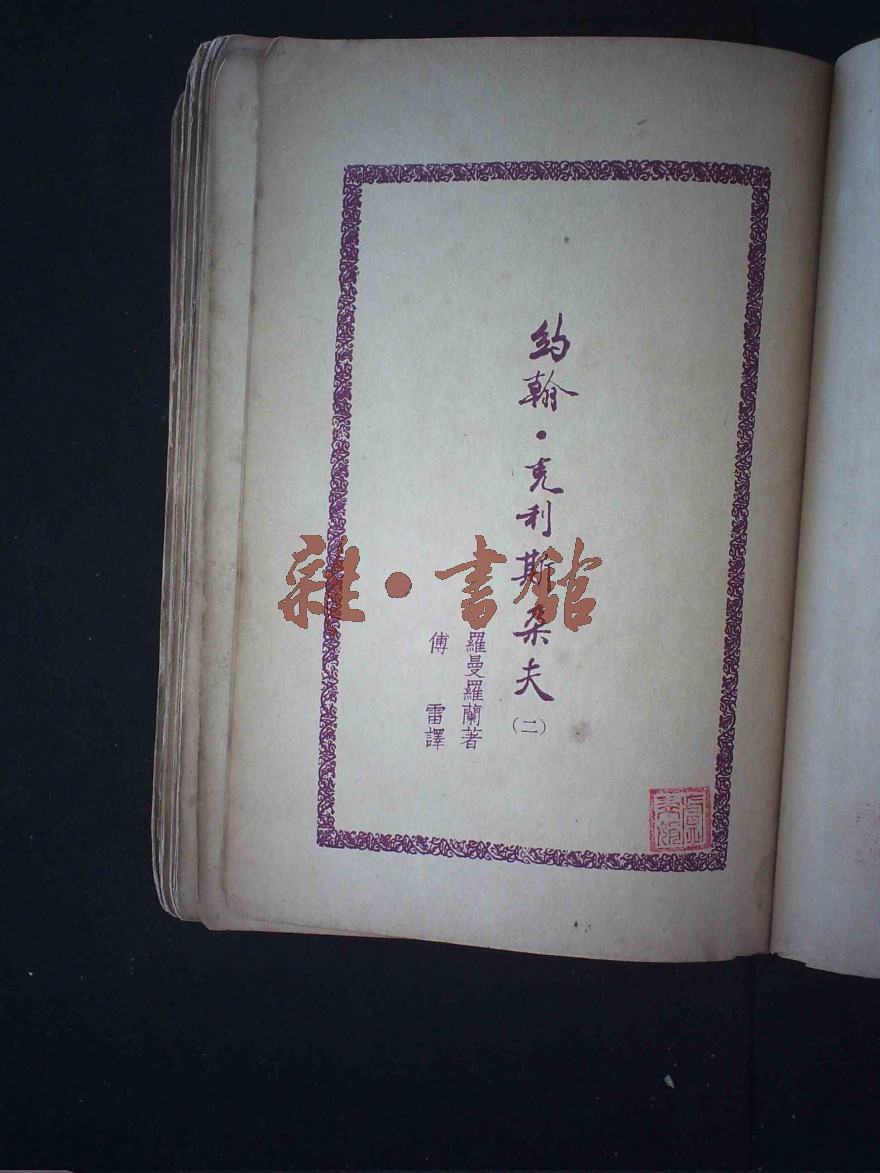 約翰·克利斯朵夫(二)
羅曼羅蘭著
傅雷譯
雜·書館